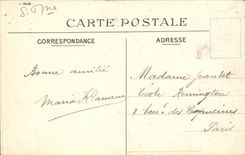 S. Mne
CARTE POSTALE
CORRESPONDANCE
ADRESSE
Bonne amitié
Maria
Madame Jeantet
Ecole Remington
8 boul. des Capucines
Paris